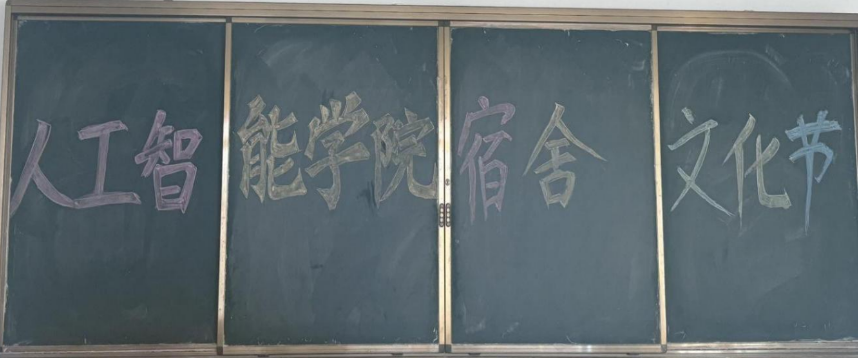 人工智能学院宿舍文化节